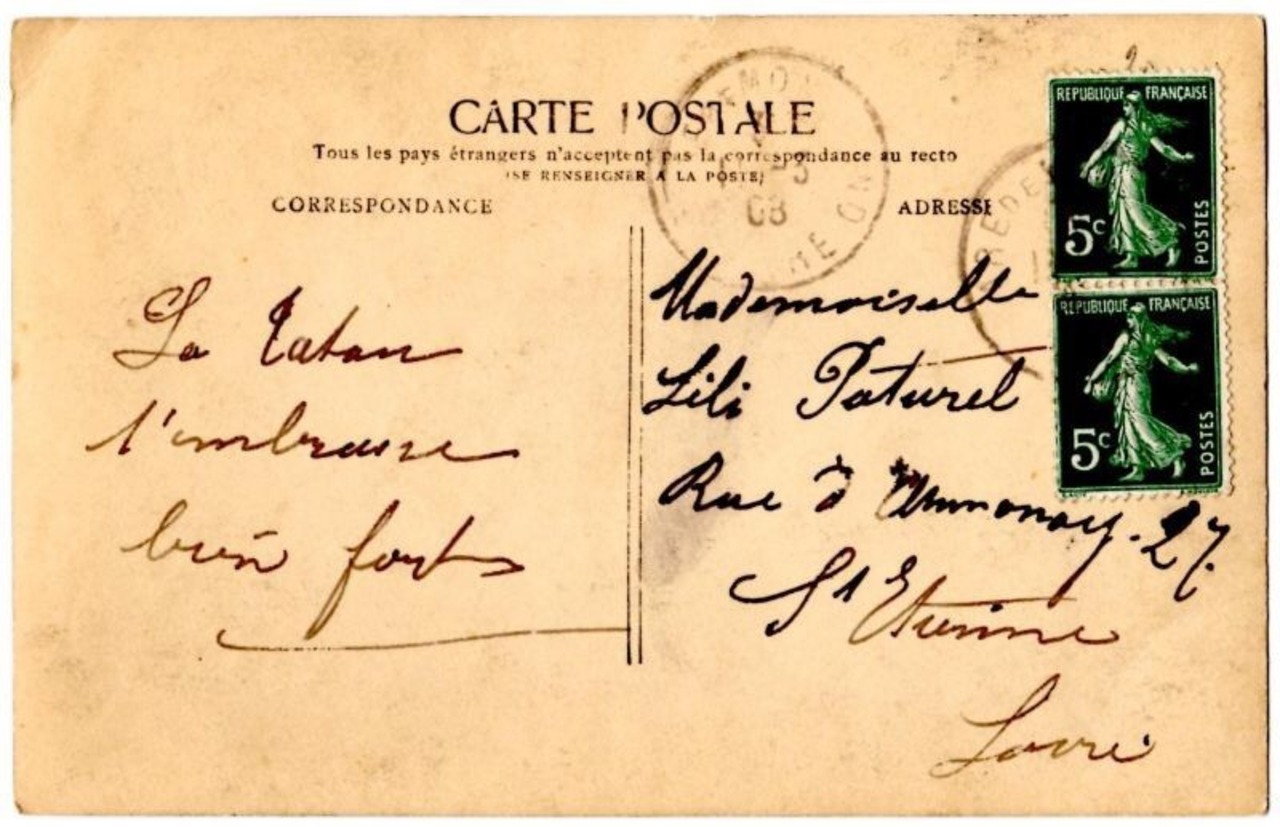 CARTE POSTALE
Tous les pays étrangers n'acceptent pas la correspondance au recto
(SE RENSEIGNER A LA POSTE)
CORRESPONDANCE
ADRESSE
La Tatan
t'embrasse
bien fort
Mademoiselle
Lili Paturel
Rue d'Annonay. 27.
St Etienne
Loire
REPUBLIQUE FRANÇAISE
5c
POSTES
REPUBLIQUE FRANÇAISE
5c
POSTES
08